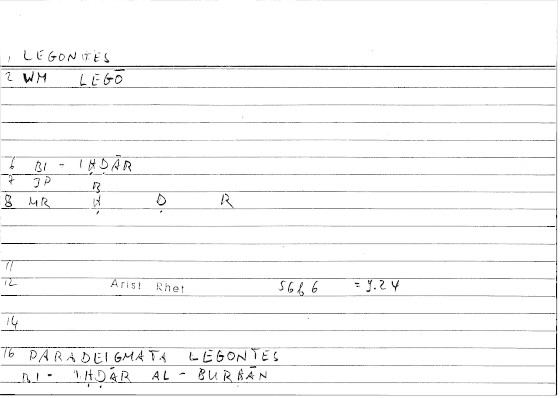 1 LEGONTES
2 WM LEGŌ
6 BI - IḤḌĀR
7 JP B
8 MR Ḥ Ḍ R
11
12 Arist Rhet 56b6 = 9.24
14
16 PARADEIGMATA LEGONTES
BI - IḤḌĀR AL - BURHĀN